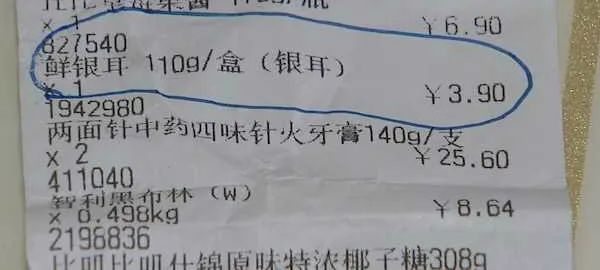 x 1
￥6.90
827540
鲜银耳 110g/盒（银耳）
x 1
￥3.90
1942980
两面针中药四味针火牙膏140g/支
x 2
￥25.60
411040
智利黑布林（W）
x 0.498kg
￥8.64
2196836
比叽比叽什锦原味特浓椰子糖308g